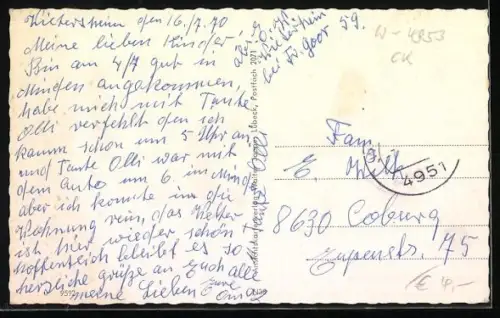 Wietersheim den 16./7.70
Meine lieben Kinder
Bin am 4/7 gut in
Minden angekommen,
habe mich mit Tante
Olli verfehlt den ich
kamm schon um 5 Uhr an
und Tante Olli war mit
dem Auto um 6 in Minden
aber ich konnte in die
Wohnung rein, das Wetter
ist hier wieder schön
hoffentlich bleibt es so
herzliche grüße an Euch alle
meine Lieben Eure
Oma
Wietersheim
59.
W-4953
CK
Lübeck, Postfach 2071
Fam.
E.
4951
8630 Coburg
75
€ 4,-